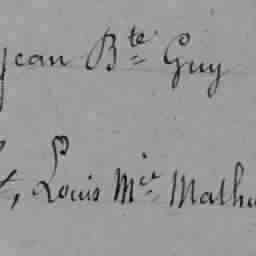 Jean Bte Guy
t, Louis Mce Mathu